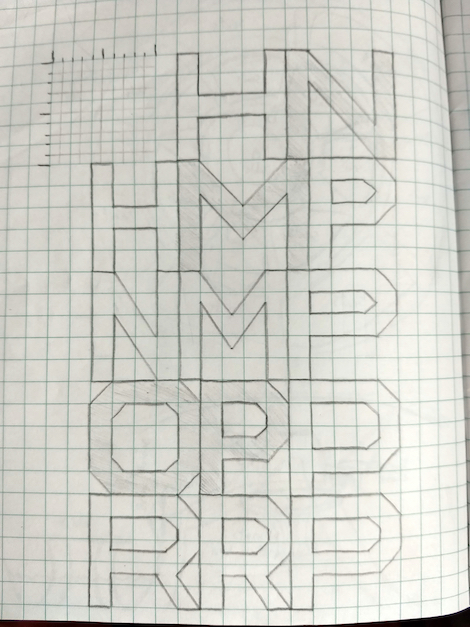 HN
HMP
NMP
QPP
RRP